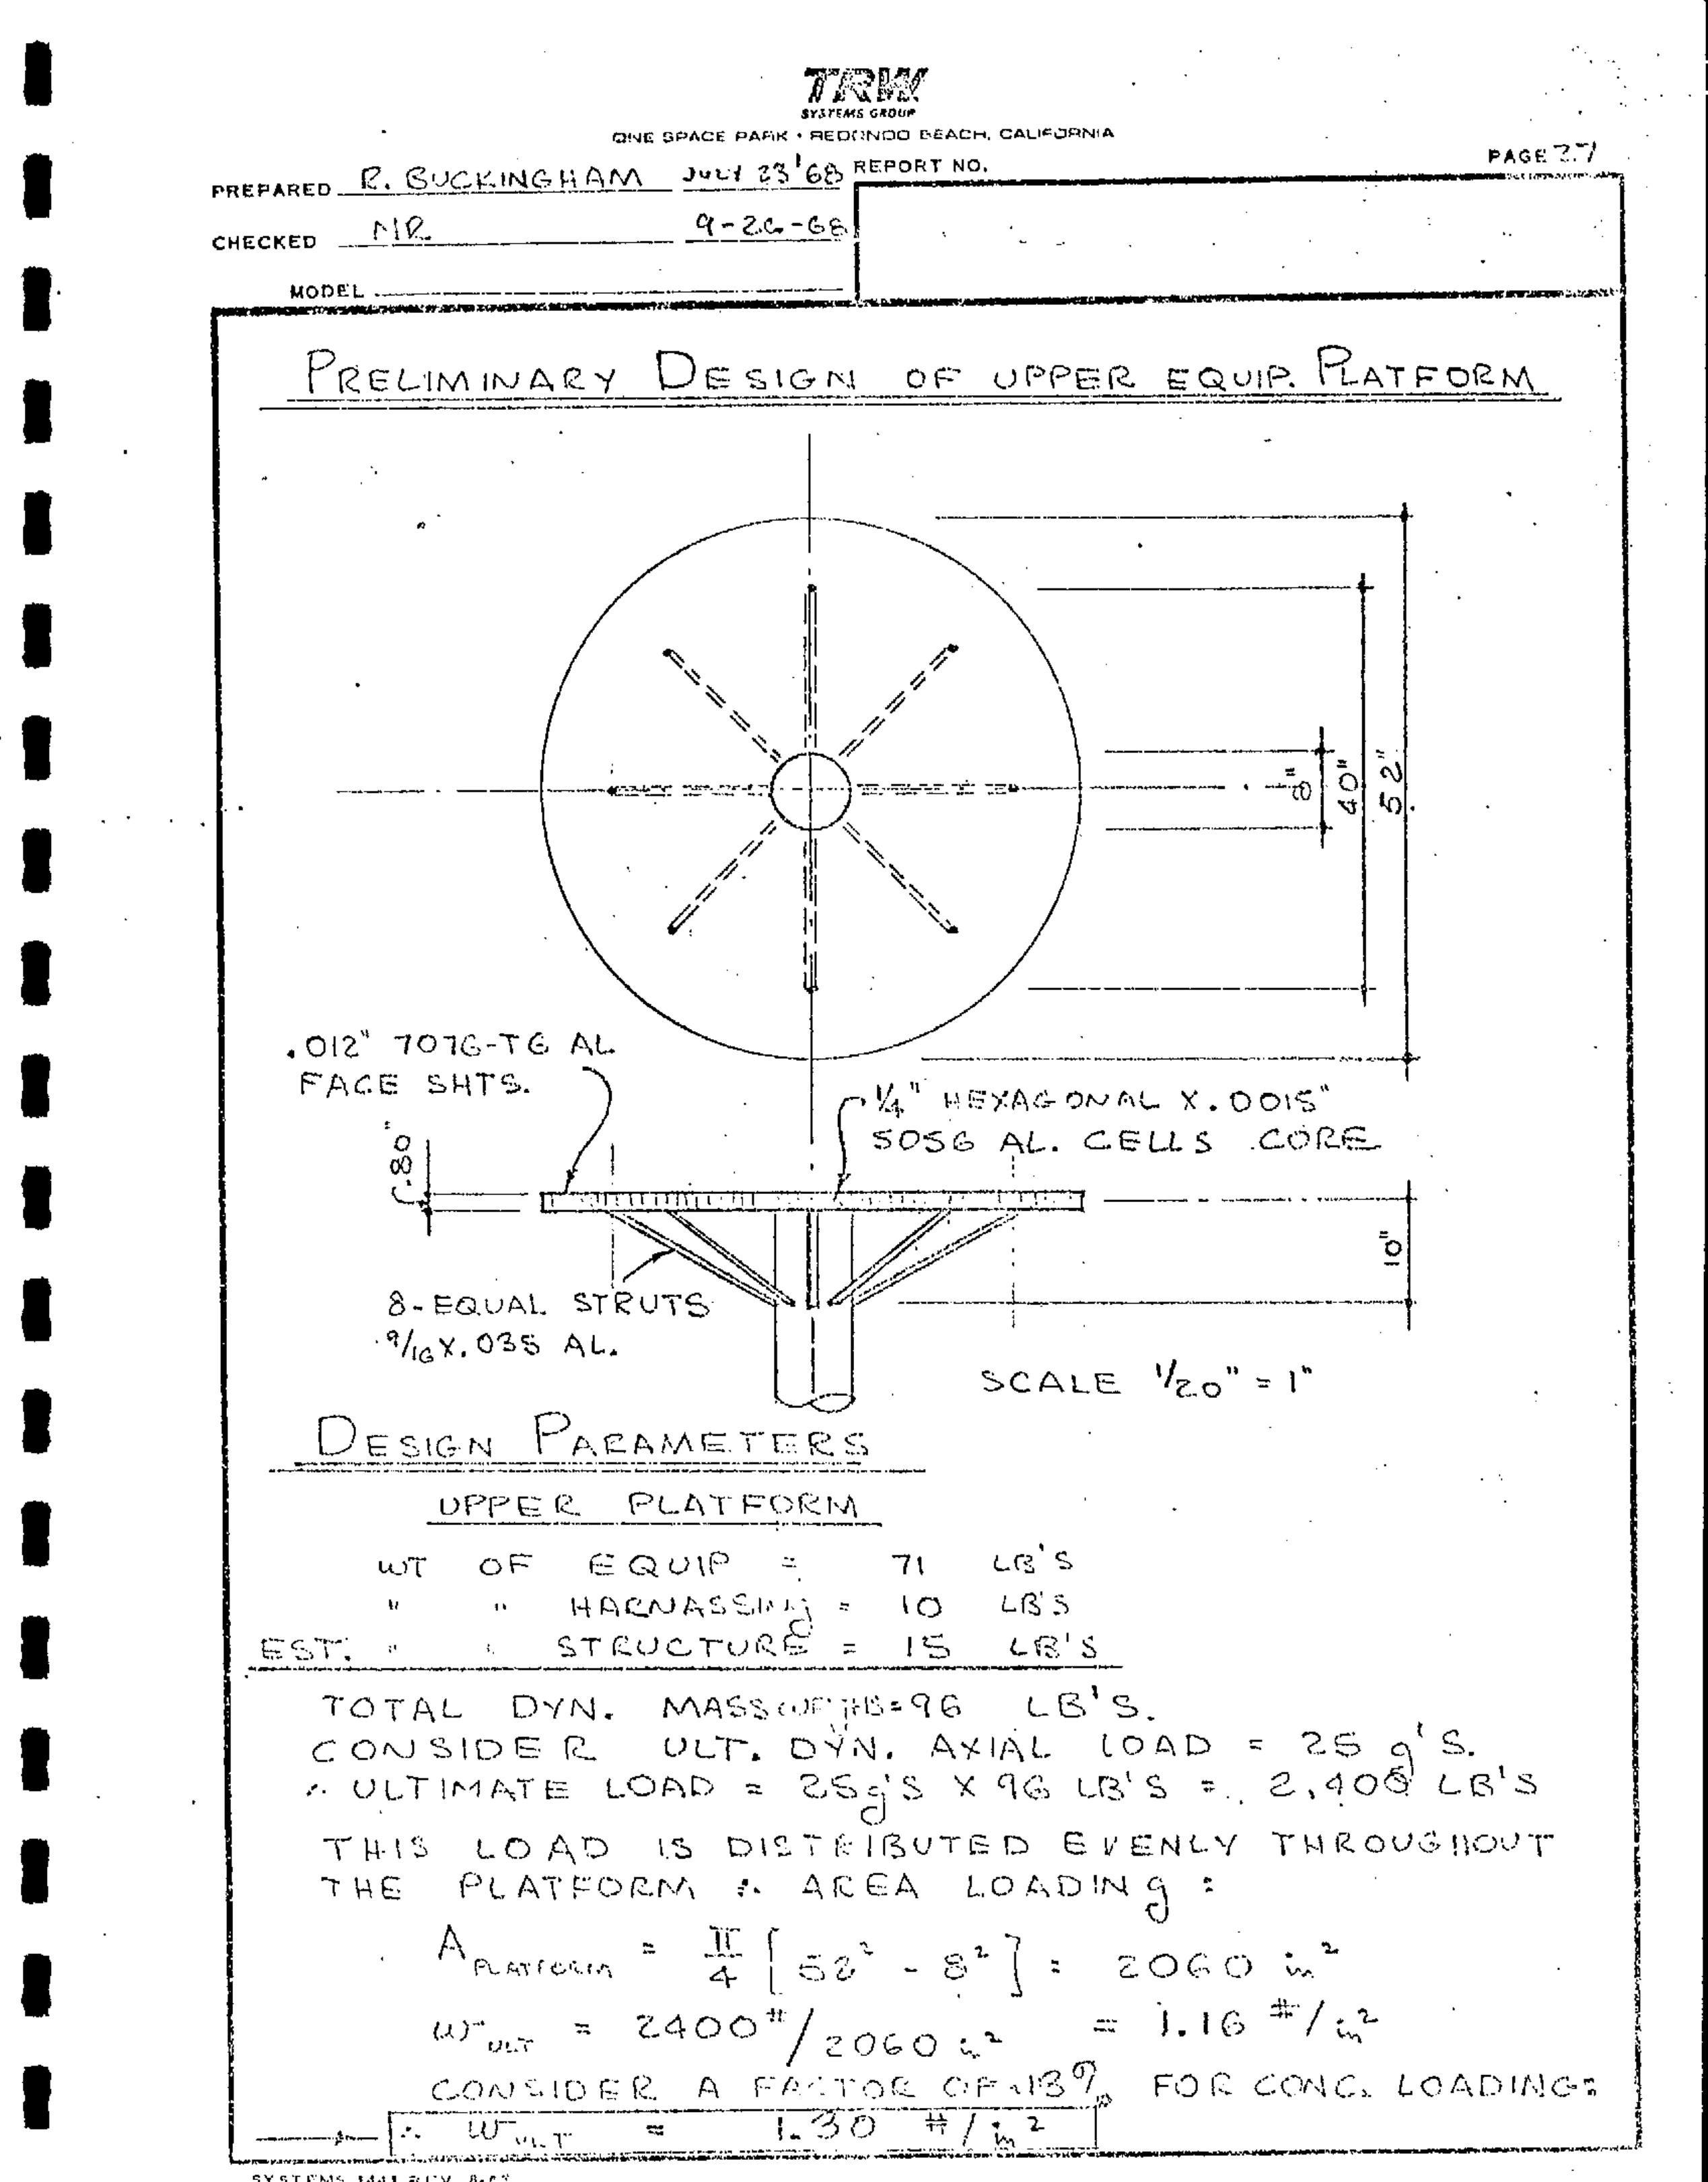 TRW
SYSTEMS GROUP
ONE SPACE PARK • REDONDO BEACH, CALIFORNIA
PREPARED R. BUCKINGHAM JULY 23'68 REPORT NO. PAGE 2.7
CHECKED MR 9-26-68
MODEL
PRELIMINARY DESIGN OF UPPER EQUIP. PLATFORM
8"
40"
52"
.012" 7076-T6 AL
FACE SHTS.
1/4" HEXAGONAL X .0015"
5056 AL. CELLS CORE
.80"
10"
8-EQUAL STRUTS
9/16 X .035 AL.
SCALE 1/20" = 1"
DESIGN PARAMETERS
UPPER PLATFORM
WT OF EQUIP = 71 LB'S
" " HARNASSING = 10 LB'S
EST. " " STRUCTURE = 15 LB'S
TOTAL DYN. MASS = 96 LB'S.
CONSIDER ULT. DYN. AXIAL LOAD = 25 g'S.
∴ ULTIMATE LOAD = 25g'S X 96 LB'S = 2,400 LB'S
THIS LOAD IS DISTRIBUTED EVENLY THROUGHOUT
THE PLATFORM ∴ AREA LOADING :
A PLATFORM = π/4 [52² - 8²] = 2060 in²
w ULT = 2400#/2060 in² = 1.16 #/in²
CONSIDER A FACTOR OF 13% FOR CONC. LOADING:
∴ w ULT = 1.30 #/in²